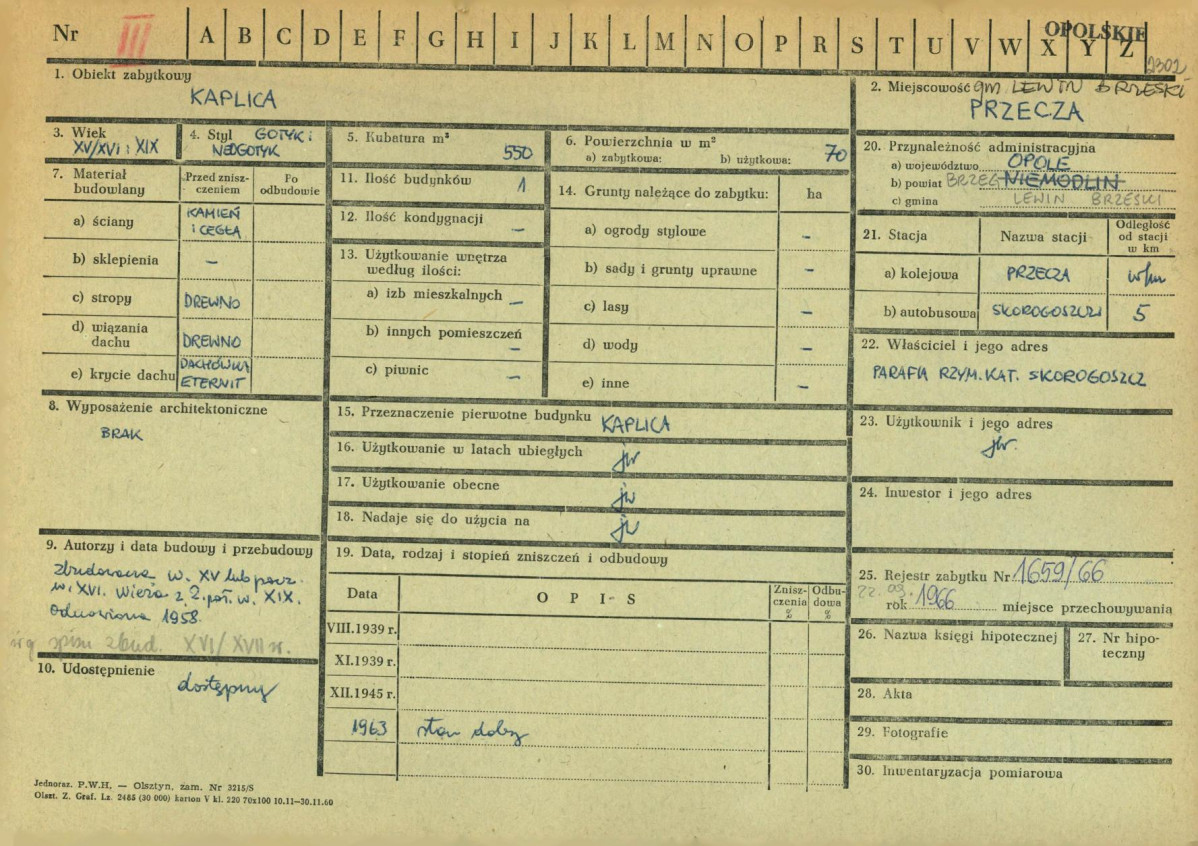 Nr III A B C D E F G H I J K L M N O P R S T U V W X Y Z
OPOLSKIE
2302
1. Obiekt zabytkowy
KAPLICA
2. Miejscowość gm. LEWIN BRZESKI
PRZECZA
3. Wiek
XV/XVI i XIX
4. Styl GOTYK i
NEOGOTYK
5. Kubatura m³
550
6. Powierzchnia w m²
a) zabytkowa: b) użytkowa: 70
7. Materiał
budowlany
Przed znisz-
czeniem
Po
odbudowie
a) ściany KAMIEŃ
i CEGŁA
b) sklepienia –
c) stropy DREWNO
d) wiązania
dachu DREWNO
e) krycie dachu DACHÓWKA
ETERNIT
8. Wyposażenie architektoniczne
BRAK
9. Autorzy i data budowy i przebudowy
zbudowana w. XV lub pocz.
w. XVI. Wieża z 2. poł. w. XIX.
Odnowiona 1958.
wg spisu zbud. XVI/XVII w.
10. Udostępnienie
dostępny
11. Ilość budynków 1
12. Ilość kondygnacji –
13. Użytkowanie wnętrza
według ilości:
a) izb mieszkalnych –
b) innych pomieszczeń –
c) piwnic –
14. Grunty należące do zabytku: ha
a) ogrody stylowe –
b) sady i grunty uprawne –
c) lasy –
d) wody –
e) inne –
15. Przeznaczenie pierwotne budynku KAPLICA
16. Użytkowanie w latach ubiegłych jw
17. Użytkowanie obecne jw
18. Nadaje się do użycia na jw
19. Data, rodzaj i stopień zniszczeń i odbudowy
Data O P I S Znisz-
czenia
% Odbu-
dowa
%
VIII.1939 r.
XI.1939 r.
XII.1945 r.
1963 stan dobry
20. Przynależność administracyjna
a) województwo OPOLE
b) powiat BRZEG NIEMODLIN
c) gmina LEWIN BRZESKI
21. Stacja Nazwa stacji Odległość
od stacji
w km
a) kolejowa PRZECZA w/m
b) autobusowa SKOROGOSZCZ 5
22. Właściciel i jego adres
PARAFIA RZYM. KAT. SKOROGOSZCZ
23. Użytkownik i jego adres
jw.
24. Inwestor i jego adres
25. Rejestr zabytku Nr 1659/66
22.09.
rok 1966 miejsce przechowywania
26. Nazwa księgi hipotecznej
27. Nr hipo-
teczny
28. Akta
29. Fotografie
30. Inwentaryzacja pomiarowa
Jednoraz. P.W.H. — Olsztyn, zam. Nr 3215/S
Olszt. Z. Graf. Lz. 2485 (30 000) karton V kl. 220 70x100 10.11—30.11.60